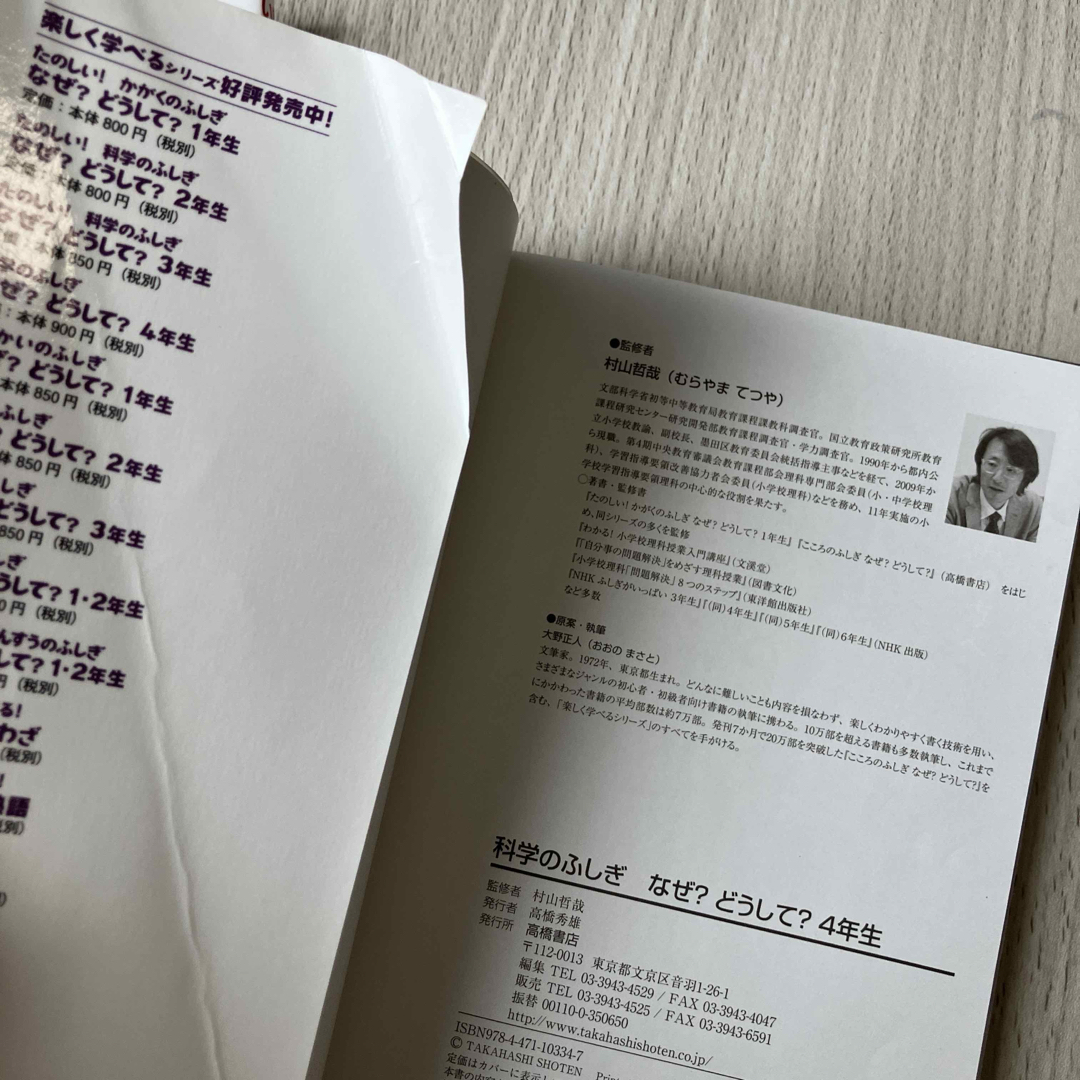 楽しく学べるシリーズ好評発売中!
たのしい! かがくのふしぎ
なぜ? どうして? 1年生
定価:本体800円(税別)
たのしい! 科学のふしぎ
なぜ? どうして? 2年生
本体800円(税別)
たのしい! 科学のふしぎ
なぜ? どうして? 3年生
本体850円(税別)
学のふしぎ
ぜ? どうして? 4年生
:本体900円(税別)
かいのふしぎ
ぜ? どうして? 1年生
本体850円(税別)
ふしぎ
? どうして? 2年生
本体850円(税別)
しぎ
どうして? 3年生
850円(税別)
しぎ
うして? 1・2年生
0円(税別)
んすうのふしぎ
して? 1・2年生
円(税別)
る!
わざ
(税別)
!
熟語
税別)
●監修者
村山哲哉(むらやま てつや)
文部科学省初等中等教育局教育課程課教科調査官。国立教育政策研究所教育
課程研究センター研究開発部教育課程調査官・学力調査官。1990年から都内公
立小学校教諭、副校長、墨田区教育委員会統括指導主事などを経て、2009年か
ら現職。第4期中央教育審議会教育課程部会理科専門部会委員(小・中学校理
科)、学習指導要領改善協力者会委員(小学校理科)などを務め、11年実施の小
学校学習指導要領理科の中心的な役割を果たす。
○著書・監修書
『たのしい! かがくのふしぎ なぜ? どうして? 1年生』『こころのふしぎ なぜ? どうして?』(高橋書店) をはじ
め、同シリーズの多くを監修
『わかる! 小学校理科授業入門講座』(文溪堂)
『「自分事の問題解決」をめざす理科授業』(図書文化)
『小学校理科「問題解決」8つのステップ』(東洋館出版社)
『NHK ふしぎがいっぱい 3年生』『(同)4年生』『(同)5年生』『(同)6年生』(NHK 出版)
など多数
●原案・執筆
大野正人(おおの まさと)
文筆家。1972年、東京都生まれ。どんなに難しいことも内容を損なわず、楽しくわかりやすく書く技術を用い、
さまざまなジャンルの初心者・初級者向け書籍の執筆に携わる。10万部を超える書籍も多数執筆し、これまで
にかかわった書籍の平均部数は約7万部。発刊7か月で20万部を突破した『こころのふしぎ なぜ? どうして?』を
含む、「楽しく学べるシリーズ」のすべてを手がける。
科学のふしぎ なぜ? どうして? 4年生
監修者 村山哲哉
発行者 高橋秀雄
発行所 高橋書店
〒112-0013 東京都文京区音羽1-26-1
編集 TEL 03-3943-4529 / FAX 03-3943-4047
販売 TEL 03-3943-4525 / FAX 03-3943-6591
振替 00110-0-350650
http://www.takahashishoten.co.jp/
ISBN978-4-471-10334-7
© TAKAHASHI SHOTEN
定価はカバーに表示し
本書の内容